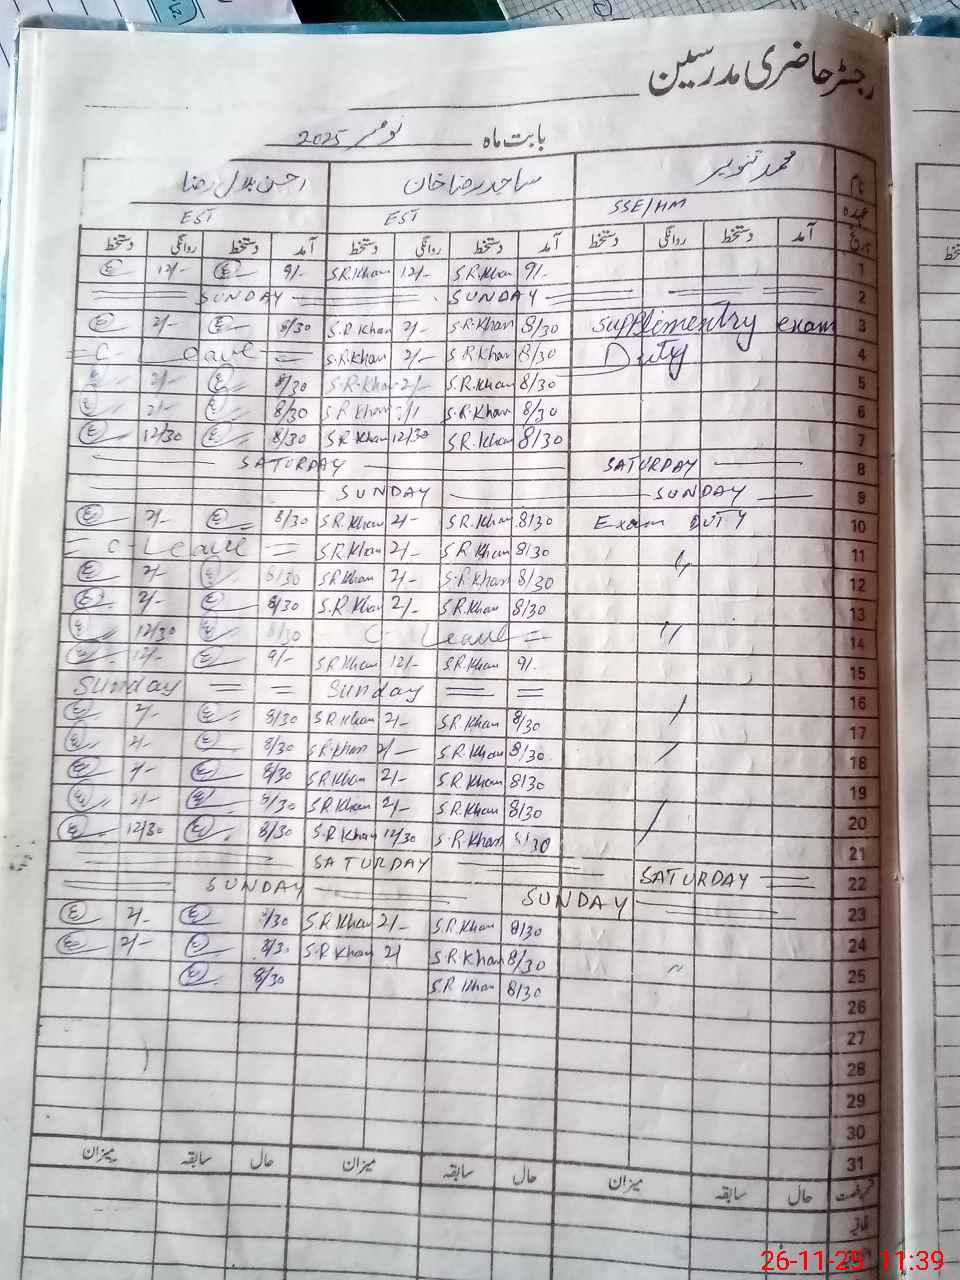 رجسٹر حاضری مدرسین
بابت ماہ نومبر 2025
نام محمد تنویر ساجد رضا خان احسن بلال رضا
عہدہ SSE/HM EST EST
تاریخ آمد دستخط روانگی دستخط آمد دستخط روانگی دستخط آمد دستخط روانگی دستخط
1 9/- S.R.Khan 12/- S.R.Khan 9/- 12/-
2 SUNDAY SUNDAY
3 Supplimentry exam 8/30 S.R.Khan 2/- S.R.Khan 8/30 2/-
4 Duty 8/30 S.R.Khan 2/- S.R.Khan C-Leave
5 8/30 S.R.Khan 2/- S.R.Khan 8/30 2/-
6 8/30 S.R.Khan 2/- S.R.Khan 8/30 2/-
7 8/30 S.R.Khan 12/30 S.R.Khan 8/30 12/30
8 SATURDAY SATURDAY
9 SUNDAY SUNDAY
10 Exam DUTY 8/30 S.R.Khan 2/- S.R.Khan 8/30 2/-
11 〃 8/30 S.R.Khan 2/- S.R.Khan C-Leave
12 8/30 S.R.Khan 2/- S.R.Khan 8/30 2/-
13 8/30 S.R.Khan 2/- S.R.Khan 8/30 2/-
14 〃 C-Leave 8/30 12/30
15 9/- S.R.Khan 12/- S.R.Khan 9/- 12/-
16 Sunday Sunday
17 8/30 S.R.Khan 2/- S.R.Khan 8/30 2/-
18 8/30 S.R.Khan 2/- S.R.Khan 8/30 2/-
19 8/30 S.R.Khan 2/- S.R.Khan 8/30 2/-
20 8/30 S.R.Khan 2/- S.R.Khan 8/30 2/-
21 8/30 S.R.Khan 12/30 S.R.Khan 8/30 12/30
22 SATURDAY SATURDAY
23 SUNDAY SUNDAY
24 8/30 S.R.Khan 2/- S.R.Khan 8/30 2/-
25 〃 8/30 S.R.Khan 2/ S.R.Khan 8/30 2/-
26 8/30 S.R.Khan 8/30
27
28
29
30
31
حال سابقہ میزان حال سابقہ میزان حال سابقہ میزان
26-11-25 11:39